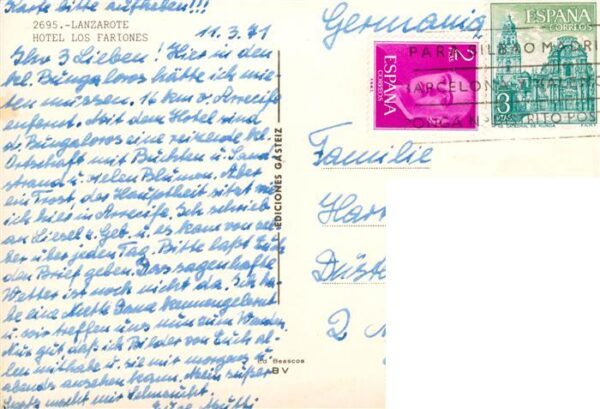 Karte bitte aufheben!!!
2695.-LANZAROTE
HOTEL LOS FARIONES
11.3.71
Ihr 3 Lieben! Hier in den
kl. Bungalows hätte ich mie-
ten müssen. 16 km v. Arrecife
entfernt. Mit dem Hotel sind
d. Bungalows eine reizende kl.
Ortschaft mit Buchten u. Sand-
strand u. vielen Blumen. Aber
ein Trost, der Hauptheit sitzt mit
ich hier in Arrecife. Ich schrieb
an Liesel z. Geb. u. es kam von sel-
ber über jeden Tag. Bitte laßt Euch
den Brief geben. Das sagenhafte
Wetter ist noch nicht da. Ich ha-
be eine nette Dame kennengelernt
u. wir treffen uns nun zum Wandern.
Nur gut, daß ich Bilder von Euch al-
len mithabe u. sie mir morgens u.
abends ansehen kann. Mein süßer
macht mir Sehnsucht.
Eure Mutti
EDICIONES GASTEIZ
Ed Beascoa
BV
Germania
ESPAÑA
CORREOS
2
PTAS
ESPAÑA
CORREOS
3
PTAS
PARA BILBAO MADRI
BARCELONA
UNICA
RITO POS
Familie
Har
Düste
2